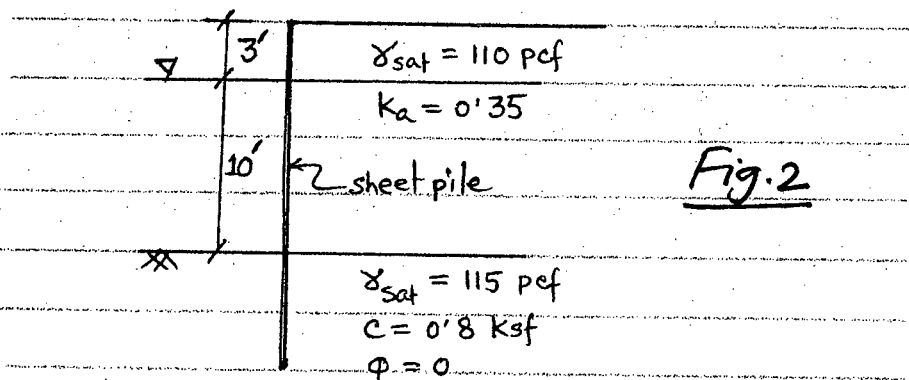 3'
γsat = 110 pcf
Ka = 0'35
10'
sheet pile
Fig.2
γsat = 115 pcf
C = 0'8 ksf
Φ = 0